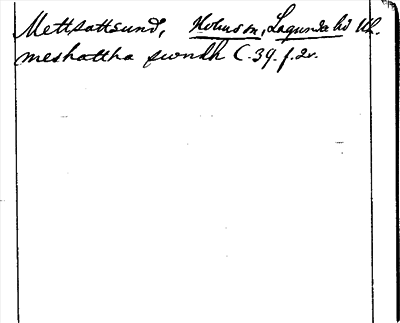 Mettsattsund, Holmson, Lagunda hd Uh.
meshattha swndh C.39.f.2v.